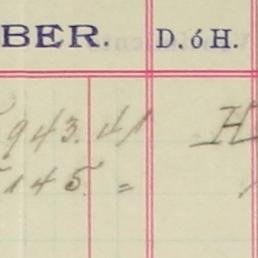 BER. D. ó H.
943.41 H
145. =